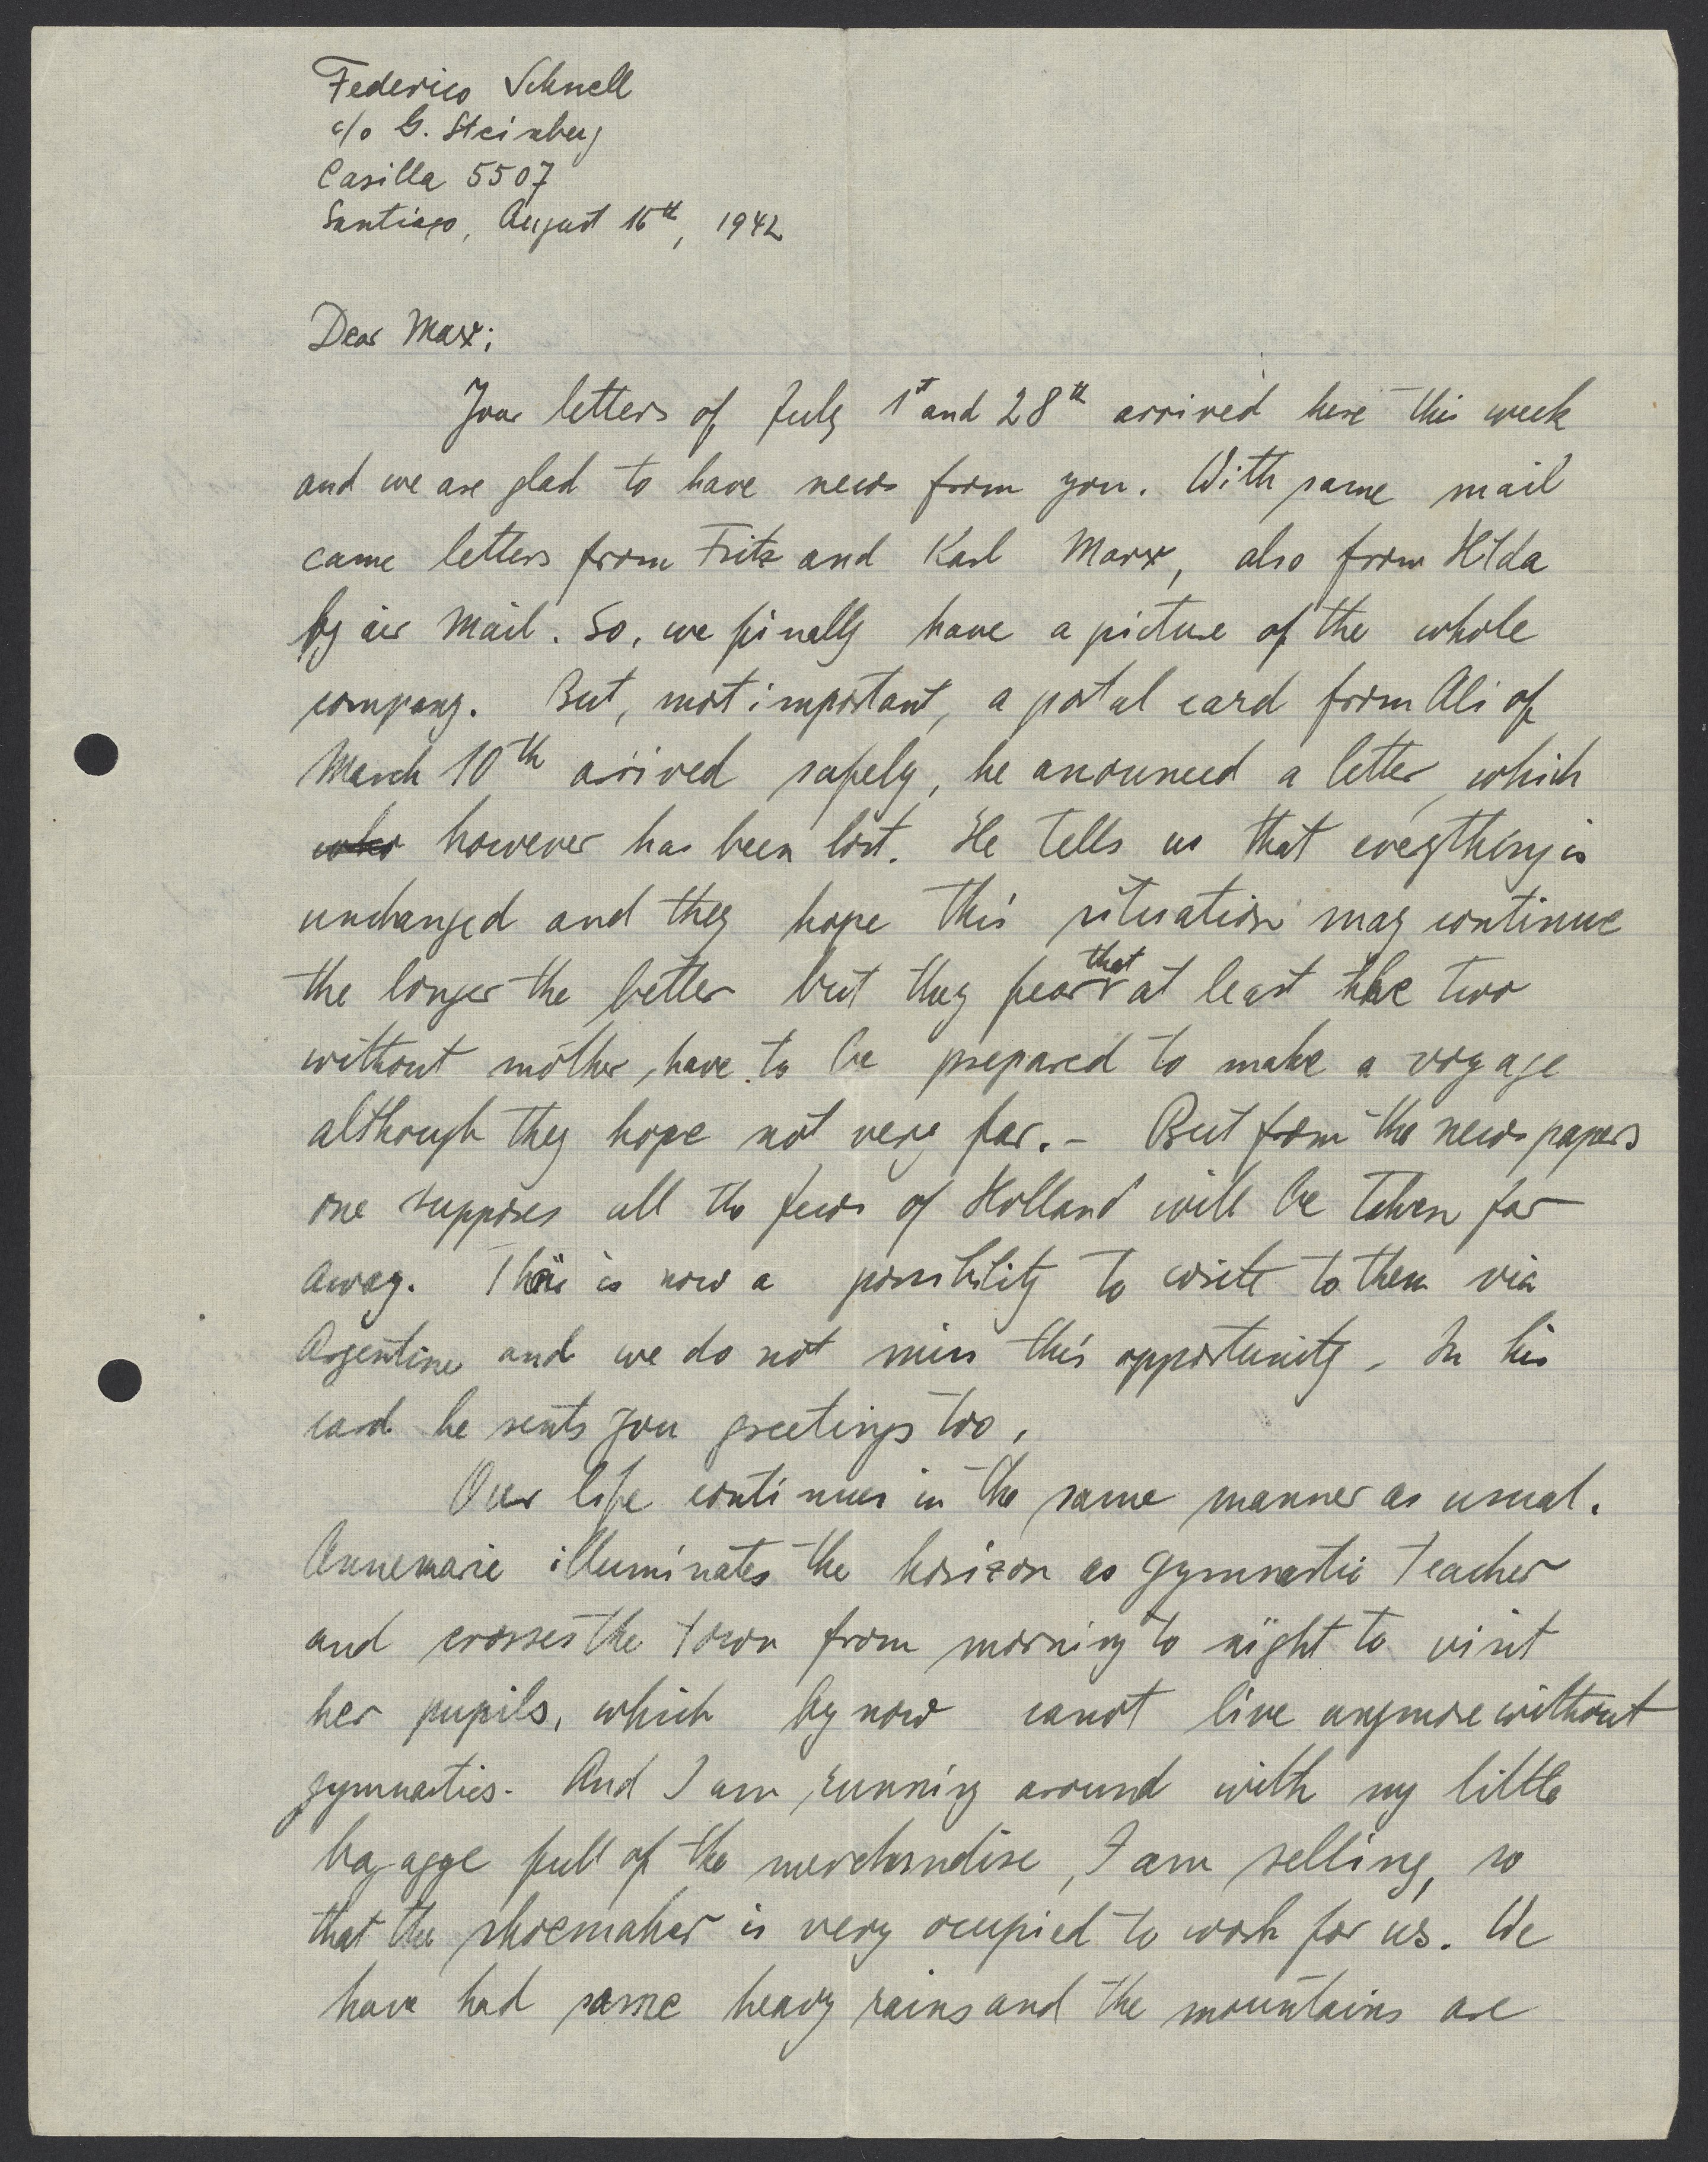 Federico Schnell
c/o G. Steinberg
Casilla 5507
Santiago, August 16th, 1942
Dear Max;
Your letters of July 1st and 28th arrived here this week
and we are glad to have news from you. With same mail
came letters from Fritz and Karl Marx, also from Hilda
by air mail. So, we finally have a picture of the whole
company. But, most important, a postal card from Ali of
March 10th arrived safely, he anounced a letter, which
however has been lost. He tells us that everything is
unchanged and they hope this situation may continue
the longer the better but they fear that at least the two
without mother, have to be prepared to make a voyage
although they hope not very far. - But from the newspapers
one supposes all the Jews of Holland will be taken far
away. There is now a possibility to write to them via
Argentine and we do not miss this opportunity. In his
card he sents you greetings too.
Our life continues in the same manner as usual.
Annemarie illuminates the horizon as gymnastic teacher
and crosses the town from morning to night to visit
her pupils, which by now canot live anymore without
gymnastics. And I am running around with my little
bagagge full of the merchandise, I am selling, so
that the shoemaker is very ocupied to work for us. We
have had some heavy rains and the mountains are